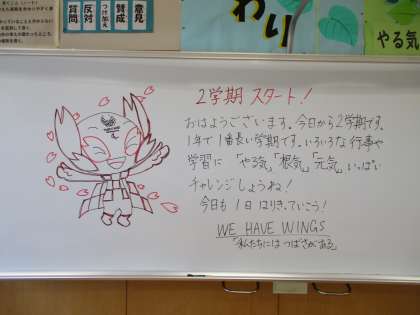 質問
反対
つけ加え
賛成
意見
わり
やる気
2学期 スタート！
おはようございます。今日から2学期です。
1年で1番長い学期です。いろいろな行事や
学習に「やる気」「根気」「元気」いっぱい
チャレンジしようね！
今日も1日はりきっていこう！
WE HAVE WINGS
「私たちにはつばさがある」